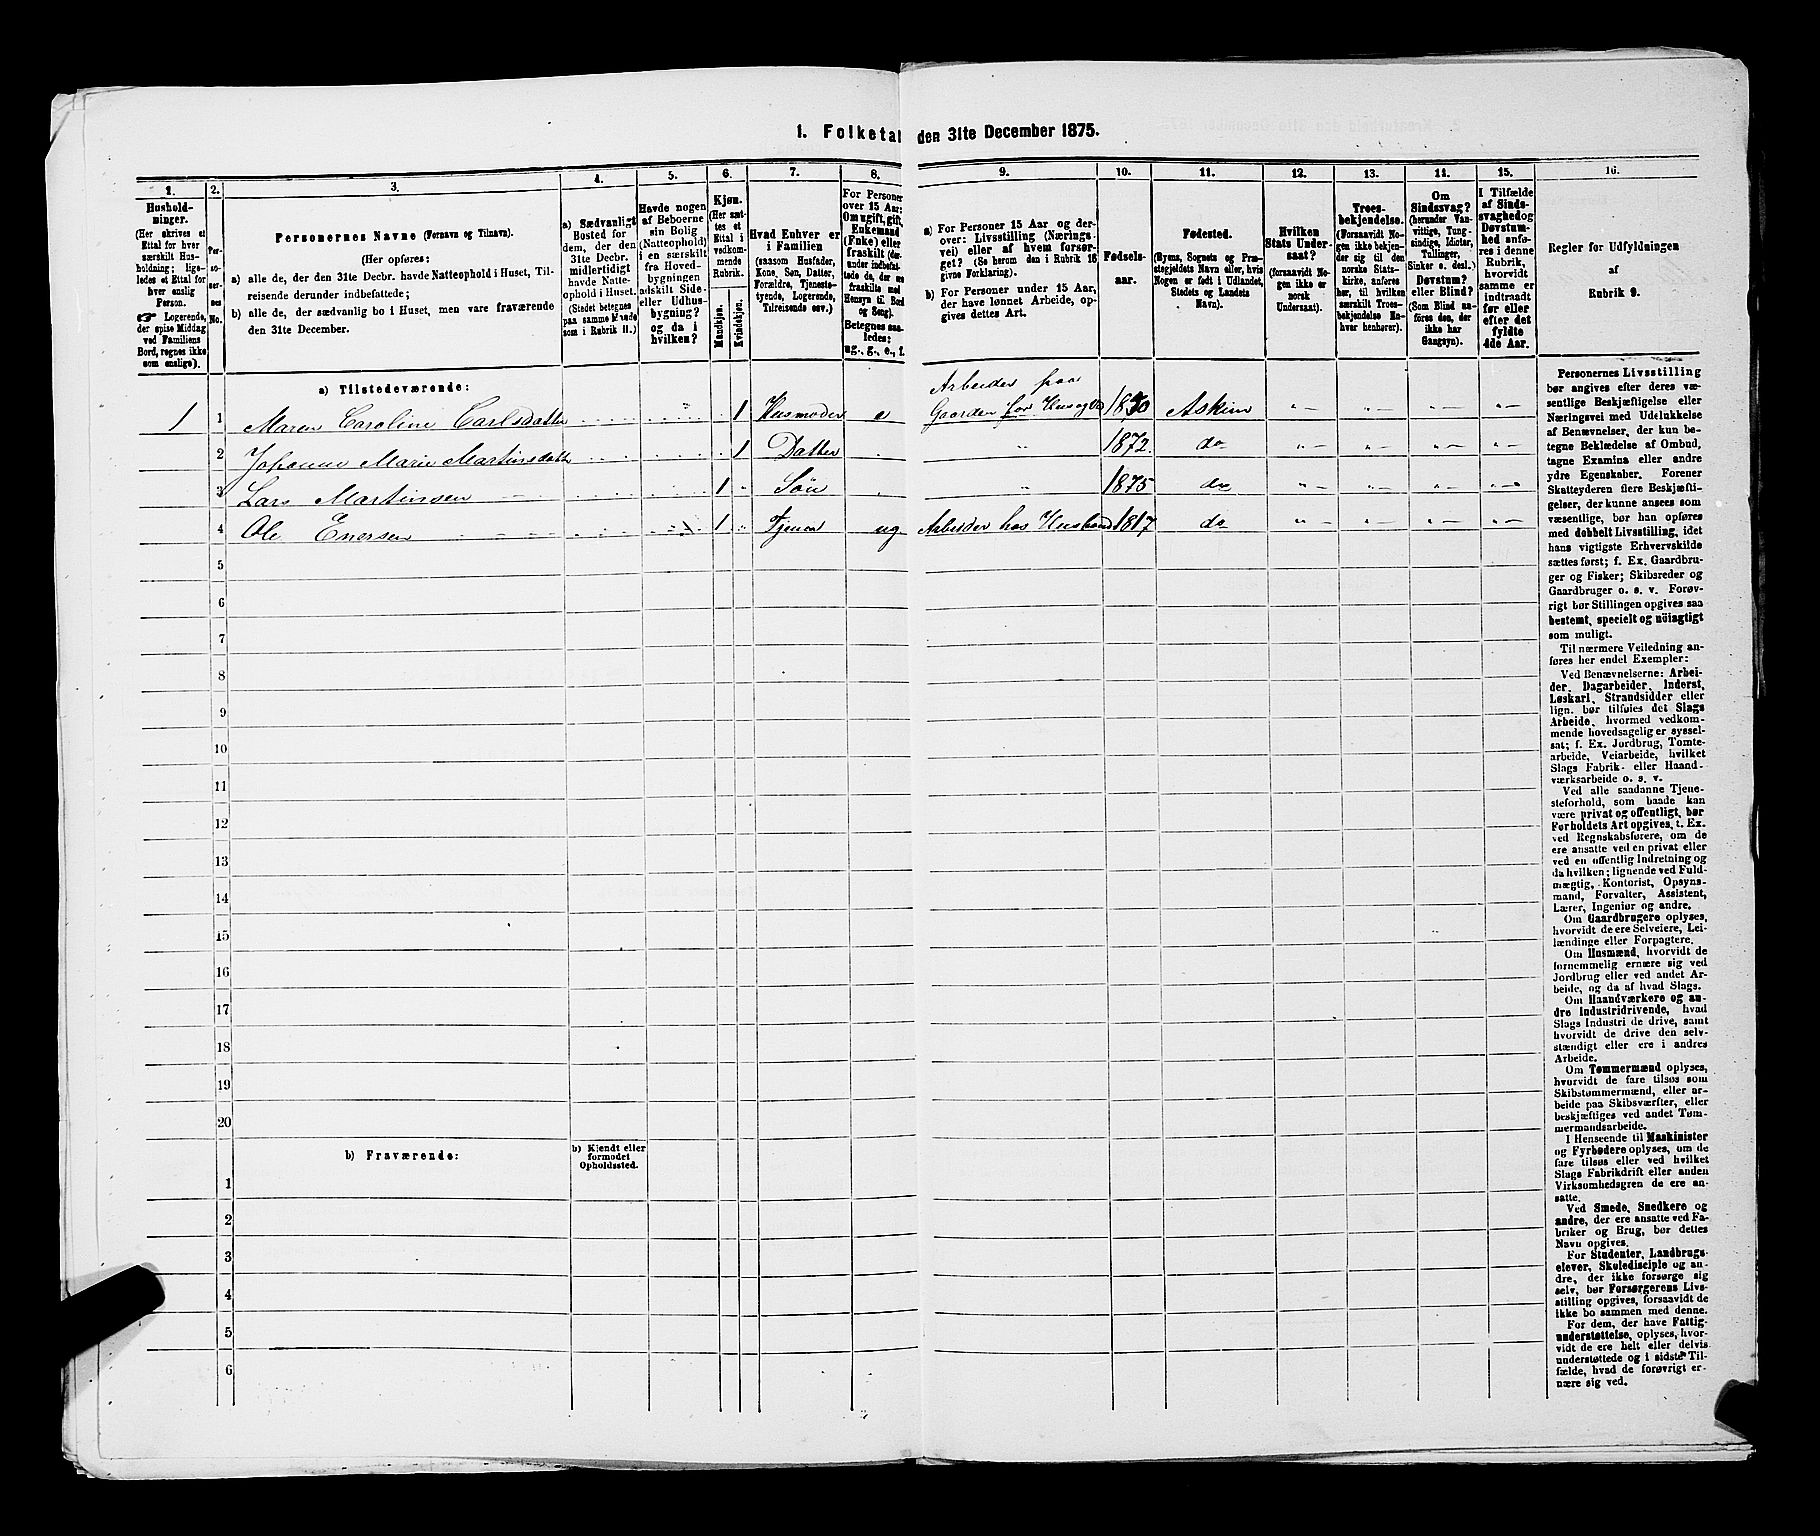 1. Folketal den 31te December 1875.
1.
Hushold-
ninger.
(Her skrives et
Ettal for hver
særskilt Hus-
holdning; lige-
ledes et Ettal for
hver enslig
Person.
Logerende,
der spise Middag
ved Familiens
Bord, regnes ikke
som enslige).
2.
Per-
so-
ner-
nes
No.
3.
Personernes Navne (Fornavn og Tilnavn).
(Her opføres:
a) alle de, der den 31te Decbr. havde Natteophold i Huset, Til-
reisende derunder indbefattede;
b) alle de, der sædvanlig bo i Huset, men vare fraværende
den 31te December.
4.
a) Sædvanligt
Bosted for
dem, der den
31te Decbr.
midlertidigt
havde Natte-
ophold i Huset.
(Stedet betegnes
paa samme Maade
som i Rubrik 11.)
5.
Havde nogen
af Beboerne
sin Bolig
(Natteophold)
i en særskilt
fra Hoved-
bygningen
adskilt Side-
eller Udhus-
bygning?
og da i
hvilken?
6.
Kjøn.
(Her sæt-
tes et
Ettal i
vedkom-
mende
Rubrik.
Mandkjøn.
Kvindekjøn.
7.
Hvad Enhver er
i Familien
(saasom Husfader,
Kone, Søn, Datter,
Forældre, Tjeneste-
tyende, Logerende,
Tilreisende osv.)
8.
For Personer
over 15 Aar:
Om ugift, gift,
Enkemand
(Enke) eller
fraskilt (der-
under indbefat-
tede de, der ere
fraskilte med
Hensyn til Bord
og Seng).
Betegnes saa-
ledes:
ug., g., e., f.
9.
a) For Personer 15 Aar og der-
over: Livsstilling (Nærings-
vei) eller af hvem forsør-
get? (Se herom den i Rubrik 16
givne Forklaring).
b) For Personer under 15 Aar,
der have lønnet Arbeide, op-
gives dettes Art.
10.
Fødsels-
aar.
11.
Fødested.
(Byens, Sognets og Præ-
stegjeldets Navn eller, hvis
Nogen er født i Udlandet,
Stedets og Landets
Navn).
12.
Hvilken
Stats Under-
saat?
(forsaavidt No-
gen ikke er
norsk
Undersaat).
13.
Troes-
bekjendelse.
(Forsaavidt No-
gen ikke bekjen-
der sig til den
norske Stats-
kirke, anføres
her, til hvilken
særskilt Troes-
bekjendelse En-
hver henhører).
14.
Om
Sindssvag?
(herunder Van-
vittige, Tung-
sindige, Idioter,
Tullinger,
Sinker o. desl.)
Døvstum?
eller Blind?
(Som Blind an-
føres den, der
ikke har
Gangsyn).
15.
I Tilfælde
af Sinds-
svaghed og
Døvstum-
hed anfø-
res i denne
Rubrik,
hvorvidt
samme er
indtraadt
før eller
efter det
fyldte
4de Aar.
16.
Regler for Udfyldningen
af
Rubrik 9.
a) Tilstedeværende:
1 1 Maren Caroline Carlsdatter 1 Husmoder e Arbeider paa
Gaarden for Hus og 1830 Askim
2 Johanne Marie Martinsdatt 1 Datter 1872. do
3 Lars Martinsen 1 Søn 1875 do
4 Ole Enersen 1 Tjener ug Arbeider hos Husbond 1817 do
5
6
7
8
9
10
11
12
13
14
15
16
17
18
19
20
b) Fraværende:
b) Kjendt eller
formodet
Opholdssted.
1
2
3
4
5
6
Personernes Livsstilling
bør angives efter deres væ-
sentlige Beskjæftigelse eller
Næringsvei med Udelukkelse
af Benævnelser, der kun be-
tegne Beklædelse af Ombud,
tagne Examina eller andre
ydre Egenskaber. Forener
Skatteyderen flere Beskjæfti-
gelser, der kunne ansees som
væsentlige, bør han opføres
med dobbelt Livsstilling, idet
hans vigtigste Erhvervskilde
sættes først; f. Ex. Gaardbru-
ger og Fisker; Skibsreder og
Gaardbruger o. s. v. Forøv-
rigt bør Stillingen opgives saa
bestemt, specielt og nöiagtigt
som muligt.
Til nærmere Veiledning an-
føres her endel Exempler:
Ved Benævnelserne: Arbei-
der, Dagarbeider, Inderst,
Løskarl, Strandsidder eller
lign. bør tilføies det Slags
Arbeide, hvormed vedkom-
mende hovedsagelig er syssel-
sat; f. Ex. Jordbrug, Tomte-
arbeide, Veiarbeide, hvilket
Slags Fabrik- eller Haand-
værksarbeide o. s. v.
Ved alle saadanne Tjene-
steforhold, som baade kan
være privat og offentligt, bør
Forholdets Art opgives, t. Ex.
ved Regnskabsførere, om de
ere ansatte ved en privat eller
ved en offentlig Indretning og
da hvilken; lignende ved Fuld-
mægtig, Kontorist, Opsyns-
mand, Forvalter, Assistent,
Lærer, Ingeniør og andre.
Om Gaardbrugere oplyses,
hvorvidt de ere Selveiere, Lei-
lændinge eller Forpagtere.
Om Husmænd, hvorvidt de
fornemmelig ernære sig ved
Jordbrug eller ved andet Ar-
beide, og da af hvad Slags.
Om Haandværkere og an-
dre Industridrivende, hvad
Slags Industri de drive, samt
hvorvidt de drive den selv-
stændigt eller ere i andres
Arbeide.
Om Tømmermænd oplyses,
hvorvidt de fare tilsøs som
Skibstømmermænd, eller ar-
beide paa Skibsværfter, eller
beskjæftiges ved andet Tøm-
mermandsarbeide.
I Henseende til Maskinister
og Fyrbødere oplyses, om de
fare tilsøs eller ved hvilket
Slags Fabrikdrift eller anden
Virksomhedsgren de ere an-
satte.
Ved Smede, Snedkere og
andre, der ere ansatte ved Fa-
briker og Brug, bør dettes
Navn opgives.
For Studenter, Landbrugs-
elever, Skoledisciple og an-
dre, der ikke forsørge sig
selv, bør Forsørgerens Livs-
stilling opgives, forsaavidt de
ikke bo sammen med denne.
For dem, der have Fattig-
understøttelse, oplyses, hvor-
vidt de ere helt eller delvis
understøttede og i sidste Til-
fælde, hvad de forøvrigt er-
nære sig ved.